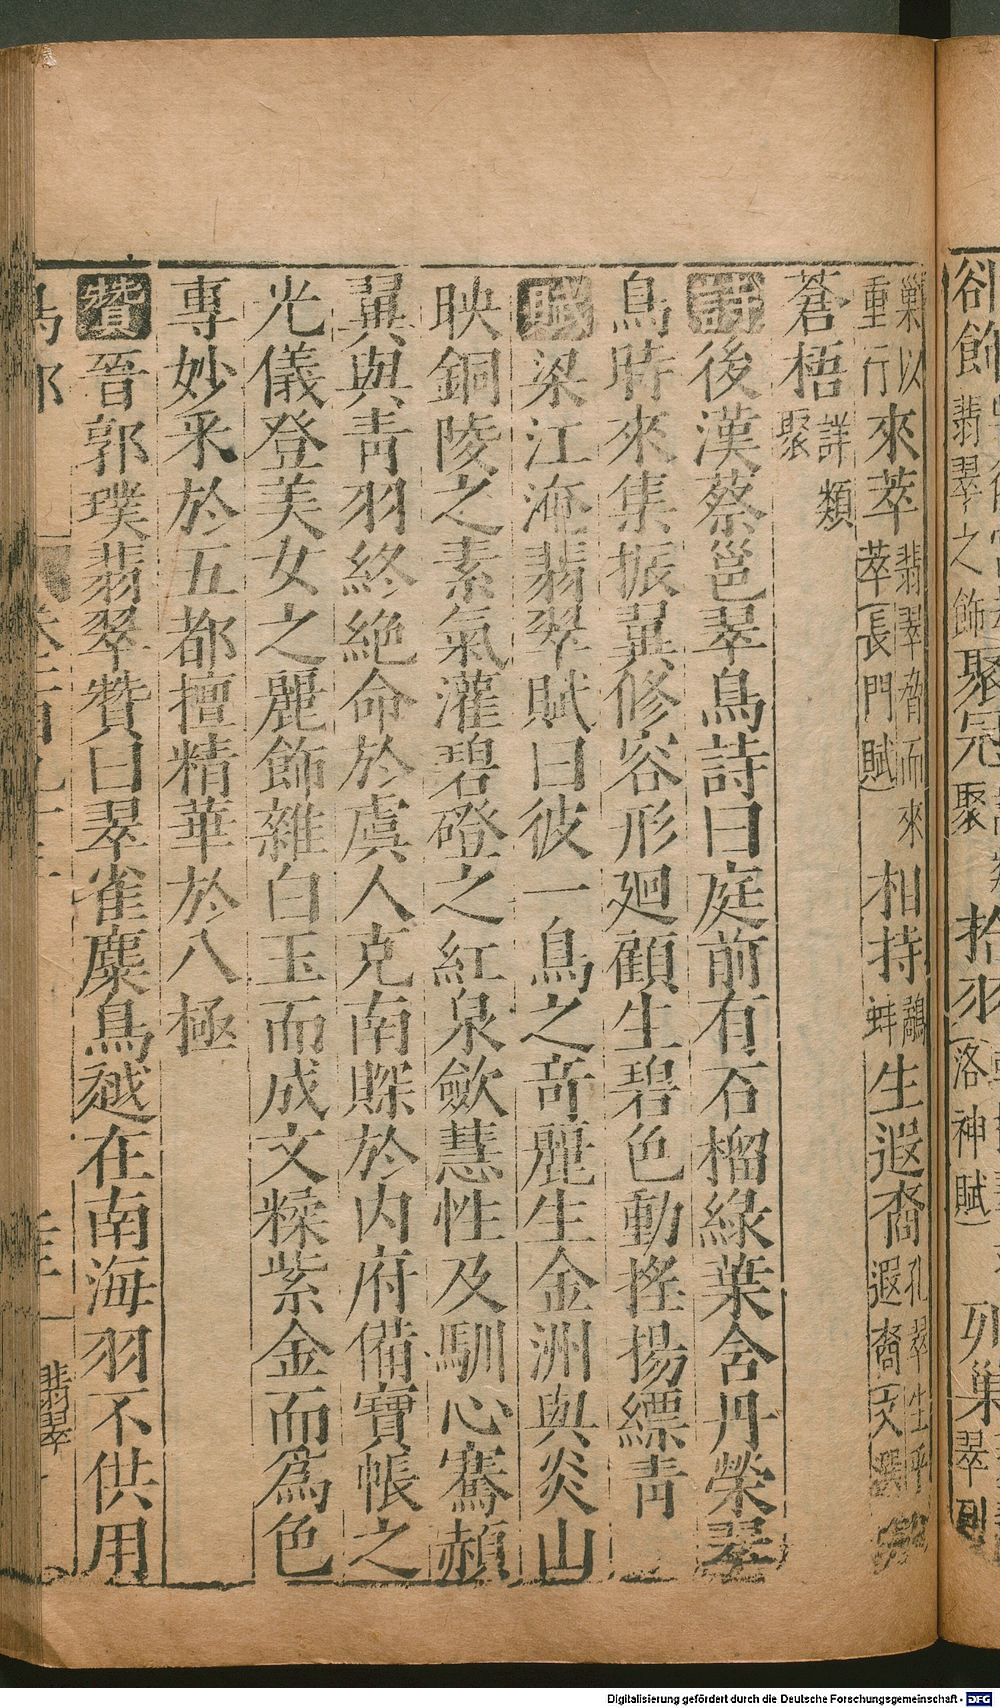 卻飾翡翠之飾聚冠聚拾羽洛神賦列巢翠列
巢以重行來萃翡翠脅而來萃長門賦相持鷸蚌生遐裔孔翠生乎遐裔文選
蒼梧詳類聚
詩後漢蔡邕翠鳥詩曰庭前有石榴綠葉含丹榮翠
鳥時來集振翼修容形廻顧生碧色動搖揚縹靑
賦梁江淹翡翠賦曰彼一鳥之竒麗生金洲與炎山
映銅陵之素氣灌碧磴之紅泉斂慧性及馴心騫赬
翼與靑羽終絶命於虞人克南賝於内府備寶帳之
光儀登美女之麗飾雜白玉而成文糅紫金而爲色
專妙釆於五都擅精華於八極
贊晉郭璞翡翠贊曰翠雀麋鳥越在南海羽不供用
鳥部
翡翠
Digitalisierung gefördert durch die Deutsche Forschungsgemeinschaft - DFG